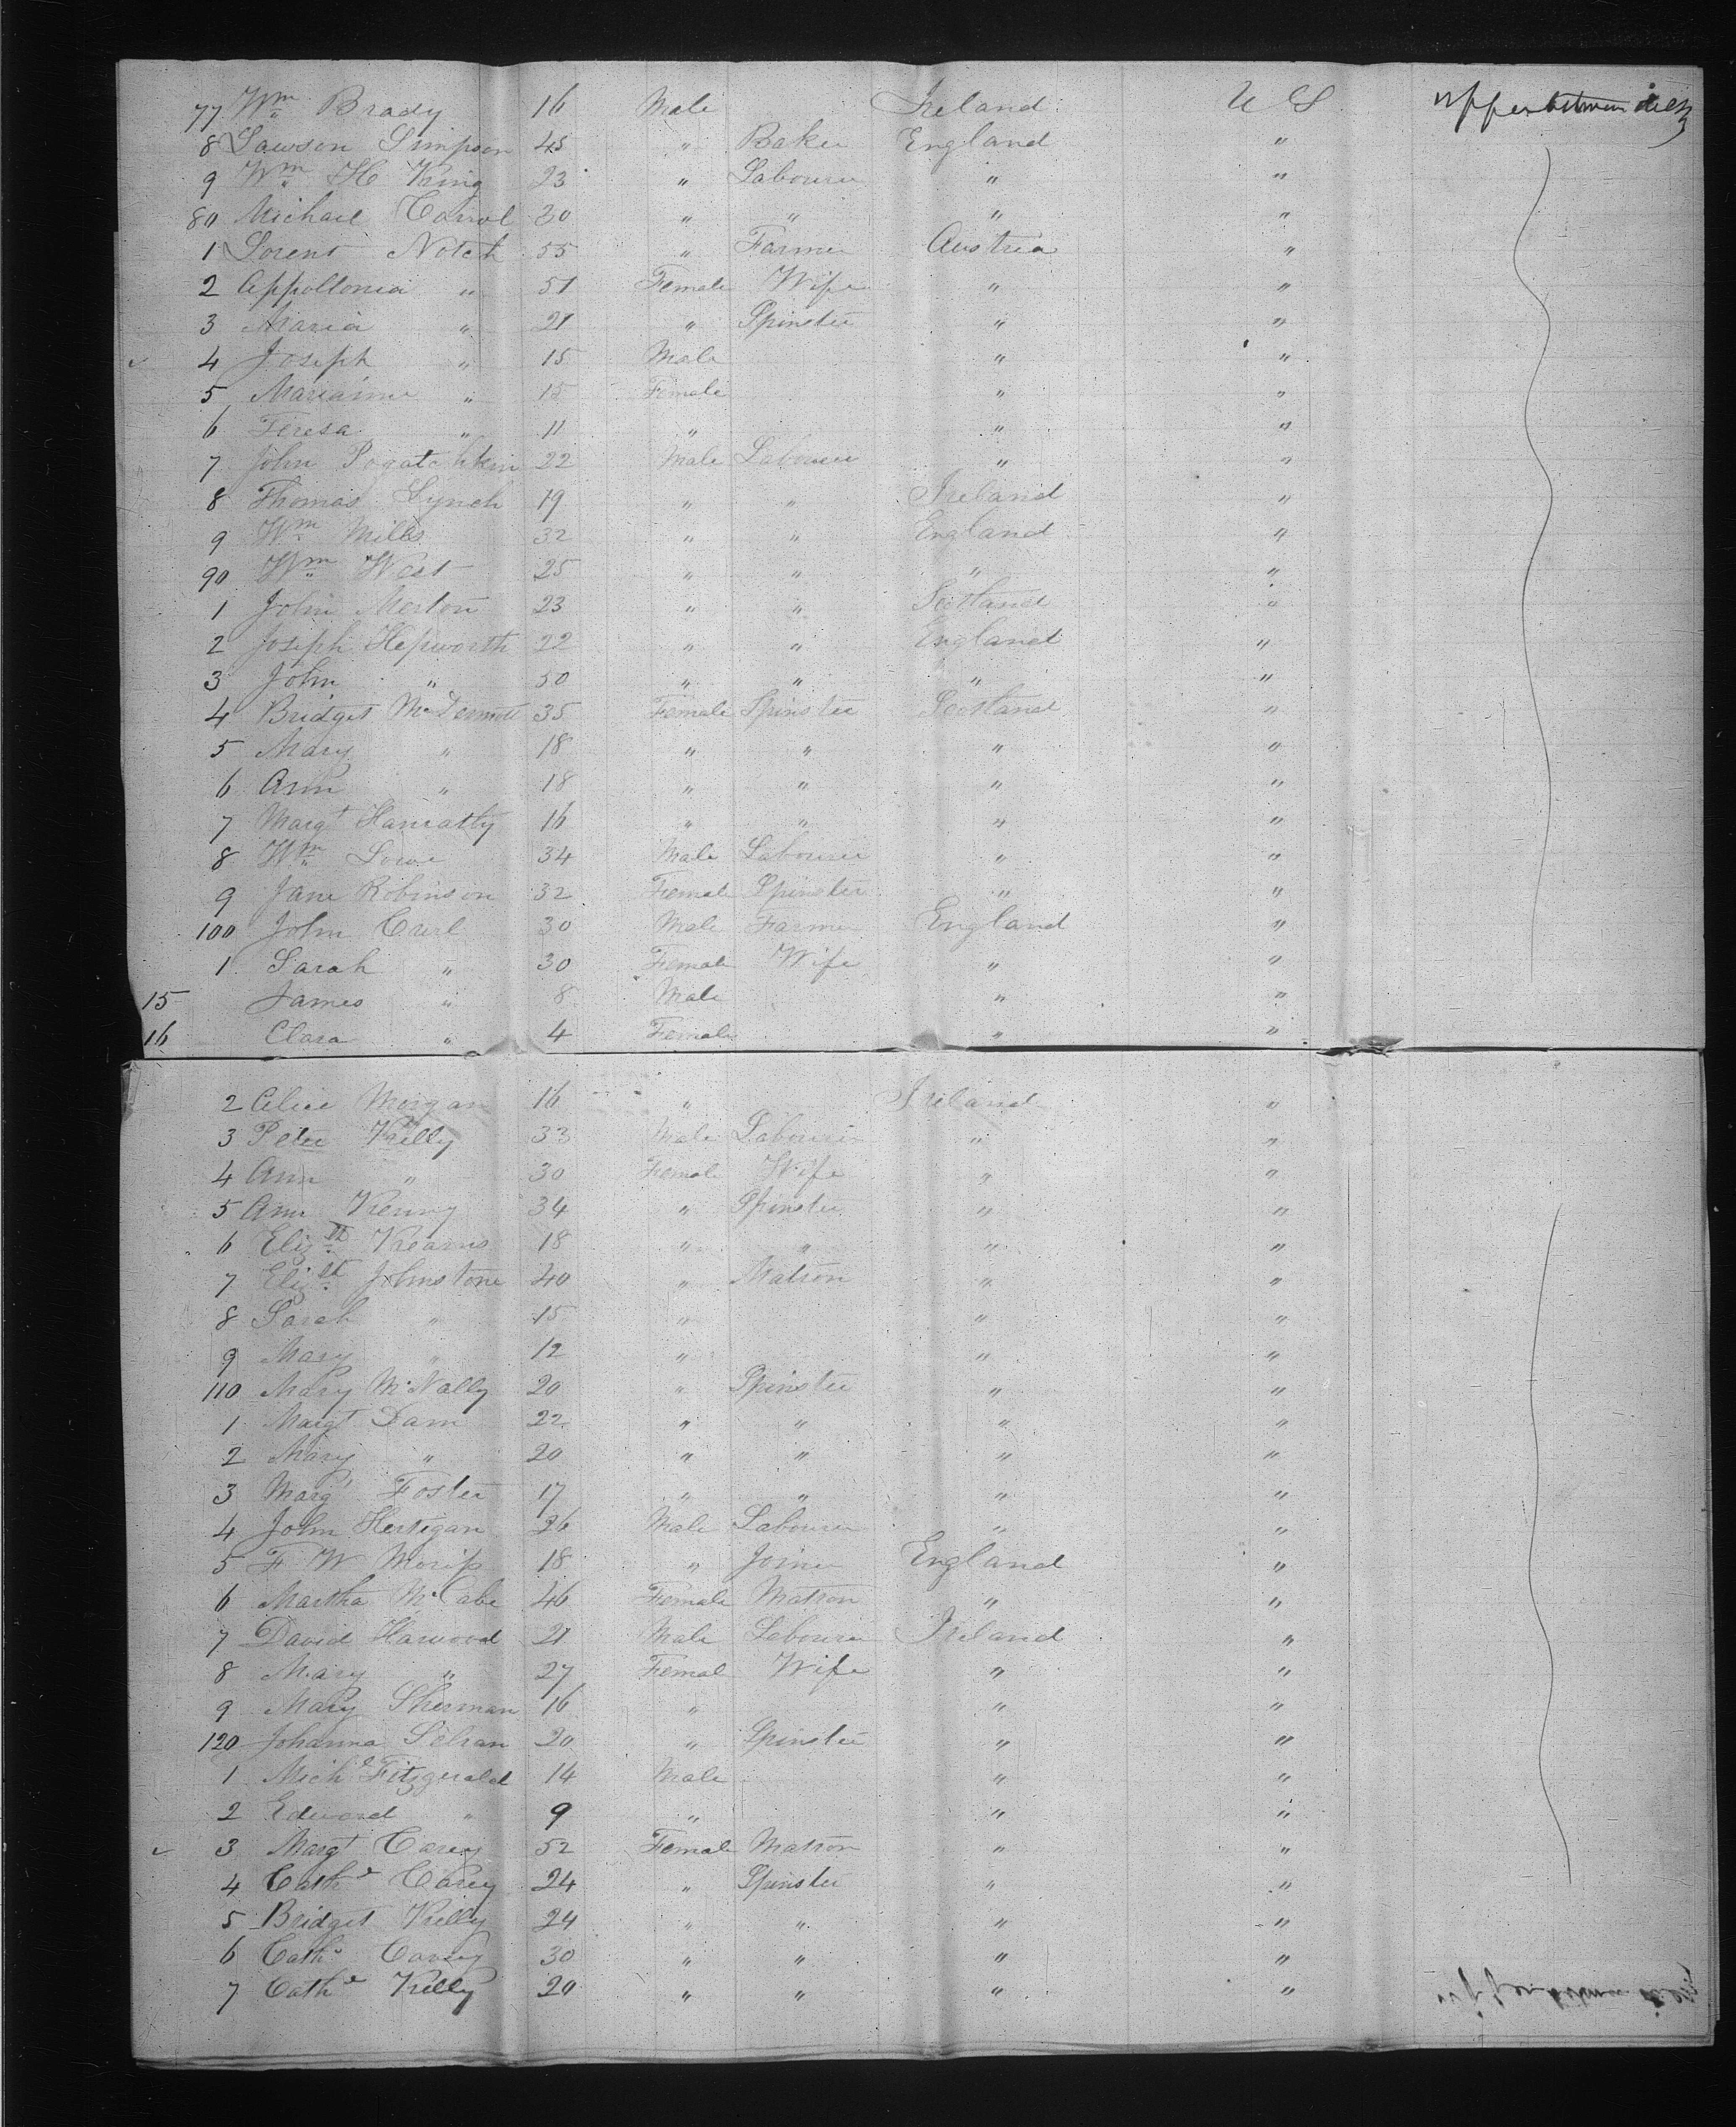 77 Wm Brady 16 Male Ireland U S upper between decks
8 Lawson Simpson 45 " Baker England "
9 Wm H King 23 " Labourer " "
80 Michael Carrol 30 " " " "
1 Lorent Notch 55 " Farmer Austria "
2 Appollonia " 51 Female Wife " "
3 Maria " 21 " Spinster " "
4 Joseph " 15 Male " "
5 Marianne " 15 Female " "
6 Teresa " 11 " " "
7 John 22 Male Labourer " "
8 Thomas Lynch 19 " " Ireland "
9 Wm Mills 32 " " England "
90 Wm West 25 " " " "
1 John Merton 23 " " Scotland "
2 Joseph Hepworth 22 " " England "
3 John " 50 " " " "
4 Bridget McDermott 35 Female Spinster Scotland "
5 Mary " 18 " " " "
6 Ann " 18 " " " "
7 Margt Hanratty 16 " " " "
8 Wm Lowe 34 Male Labourer " "
9 Jane Robinson 32 Female Spinster " "
100 John Curl 30 Male Farmer England "
1 Sarah " 30 Female Wife " "
15 James " 8 Male " "
16 Clara " 4 Female " "
2 Alice Morgan 16 " Ireland "
3 Peter Kelly 33 Male Labourer " "
4 Ann " 30 Female Wife " "
5 Ann Kenny 34 " Spinster " "
6 Elizth Kearns 18 " " " "
7 Elizth Johnstone 40 " Matron " "
8 Sarah " 15 " " "
9 Mary " 12 " " "
110 Mary McNally 20 " Spinster " "
1 Margt Dam 22 " " " "
2 Mary " 20 " " " "
3 Margt Foster 17 " " " "
4 John Hertigan 26 Male Labourer " "
5 F W 18 " Joiner England "
6 Martha McCabe 46 Female Matron " "
7 David Harwood 21 Male Labourer Ireland "
8 Mary " 27 Female Wife " "
9 Mary Sherman 16 " " "
120 Johanna 20 " Spinster " "
1 Michl Fitzgerald 14 Male " "
2 Edward " 9 " " "
3 Margt Carey 52 Female Matron " "
4 Cathe Carey 24 " Spinster " "
5 Bridget Kelly 24 " " " "
6 Cathe 30 " " " "
7 Cathe Kelly 20 " " " "